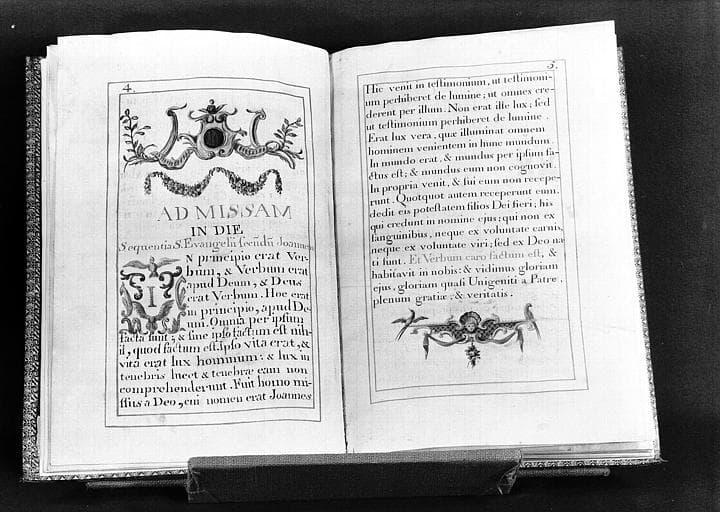 4.
AD MISSAM
IN DIE
Sequentia S. Evangelii secūndū Joannem
IN principio erat Ver-
bum, & Verbum erat
apud Deum, & Deus
erat Verbum. Hoc erat
in principio, apud De-
um. Omnia per ipsum
facta sunt: & sine ipso factum est nih-
il, quod factum est. Ipso vita erat, &
vita erat lux hominum: & lux in
tenebris lucet & tenebræ eam non
comprehenderunt. Fuit homo mi-
ssus a Deo, cui nomen erat Joannes.
5.
Hic venit in testimonium, ut testimoni-
um perhiberet de lumine; ut omnes cre-
derent per illum. Non erat ille lux; sed
ut testimonium perhiberet de lumine.
Erat lux vera, quæ illuminat omnem
hominem venientem in hunc mundum.
In mundo erat, & mundus per ipsum fa-
ctus est; & mundus eum non cognovit.
In propria venit, & sui eum non recepe-
runt. Quotquot autem receperunt eum.
dedit eis potestatem filios Dei fieri; his
qui credunt in nomine ejus; qui non ex
sanguinibus, neque ex voluntate carnis,
neque ex voluntate viri; sed ex Deo na-
ti sunt. Et Verbum caro factum est, &
habitavit in nobis: & vidimus gloriam
ejus, gloriam quasi Unigeniti a Patre,
plenum gratiæ, & veritatis.